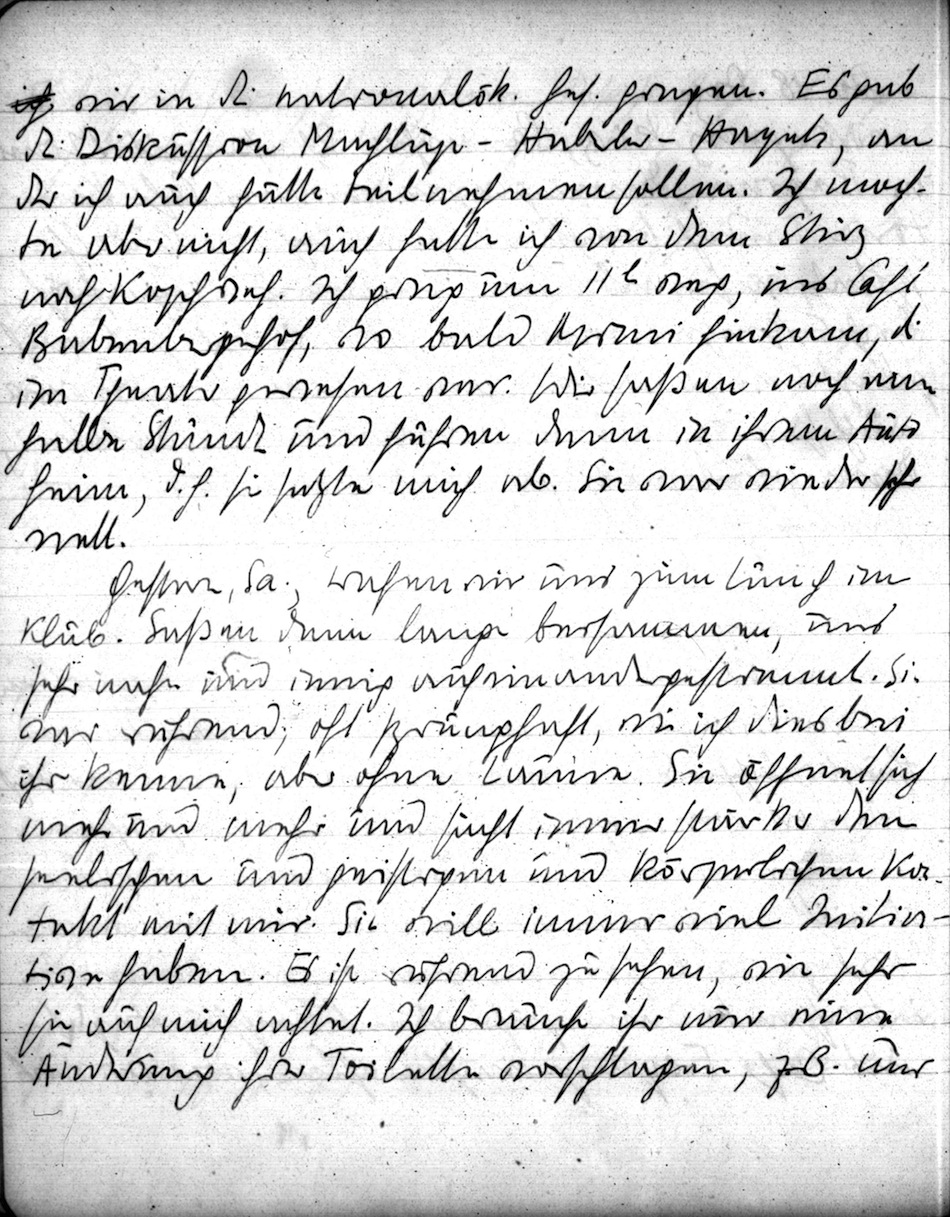 wir in d. nationalök. Ges. gingen. Es gab
d. Diskussion Machlup - Haberler - Hayek, an
der ich auch hätte teilnehmen sollen. Ich moch-
te aber nicht, auch hatte ich von dem Sturz
noch Kopfweh. Ich ging um 11h weg, ins Café
wo bald Mimi hinkam, d.
im Theater gewesen war. Wir saßen noch eine
halbe Stunde und fuhren dann in ihrem Auto
heim, d.h. sie setzte mich ab. Sie war wieder sehr
nett.
Gestern, Sa., trafen wir uns zum Lunch im
Klub. Saßen dann lange beisammen, und
sehr nahe und innig aufeinandergestimmt. Sie
war rührend, oft wie ich dies bei
ihr kenne, aber ohne Laune. Sie öffnet sich
mehr und mehr und sucht immer stärker den
seelischen und geistigen und körperlichen Kon-
takt mit mir. Sie will immer viel Initia-
tive haben. Es ist rührend zu sehen, wie sehr
sie auf mich achtet. Ich brauche ihr nur eine
Änderung ihrer Toilette vorschlagen, z.B. nur